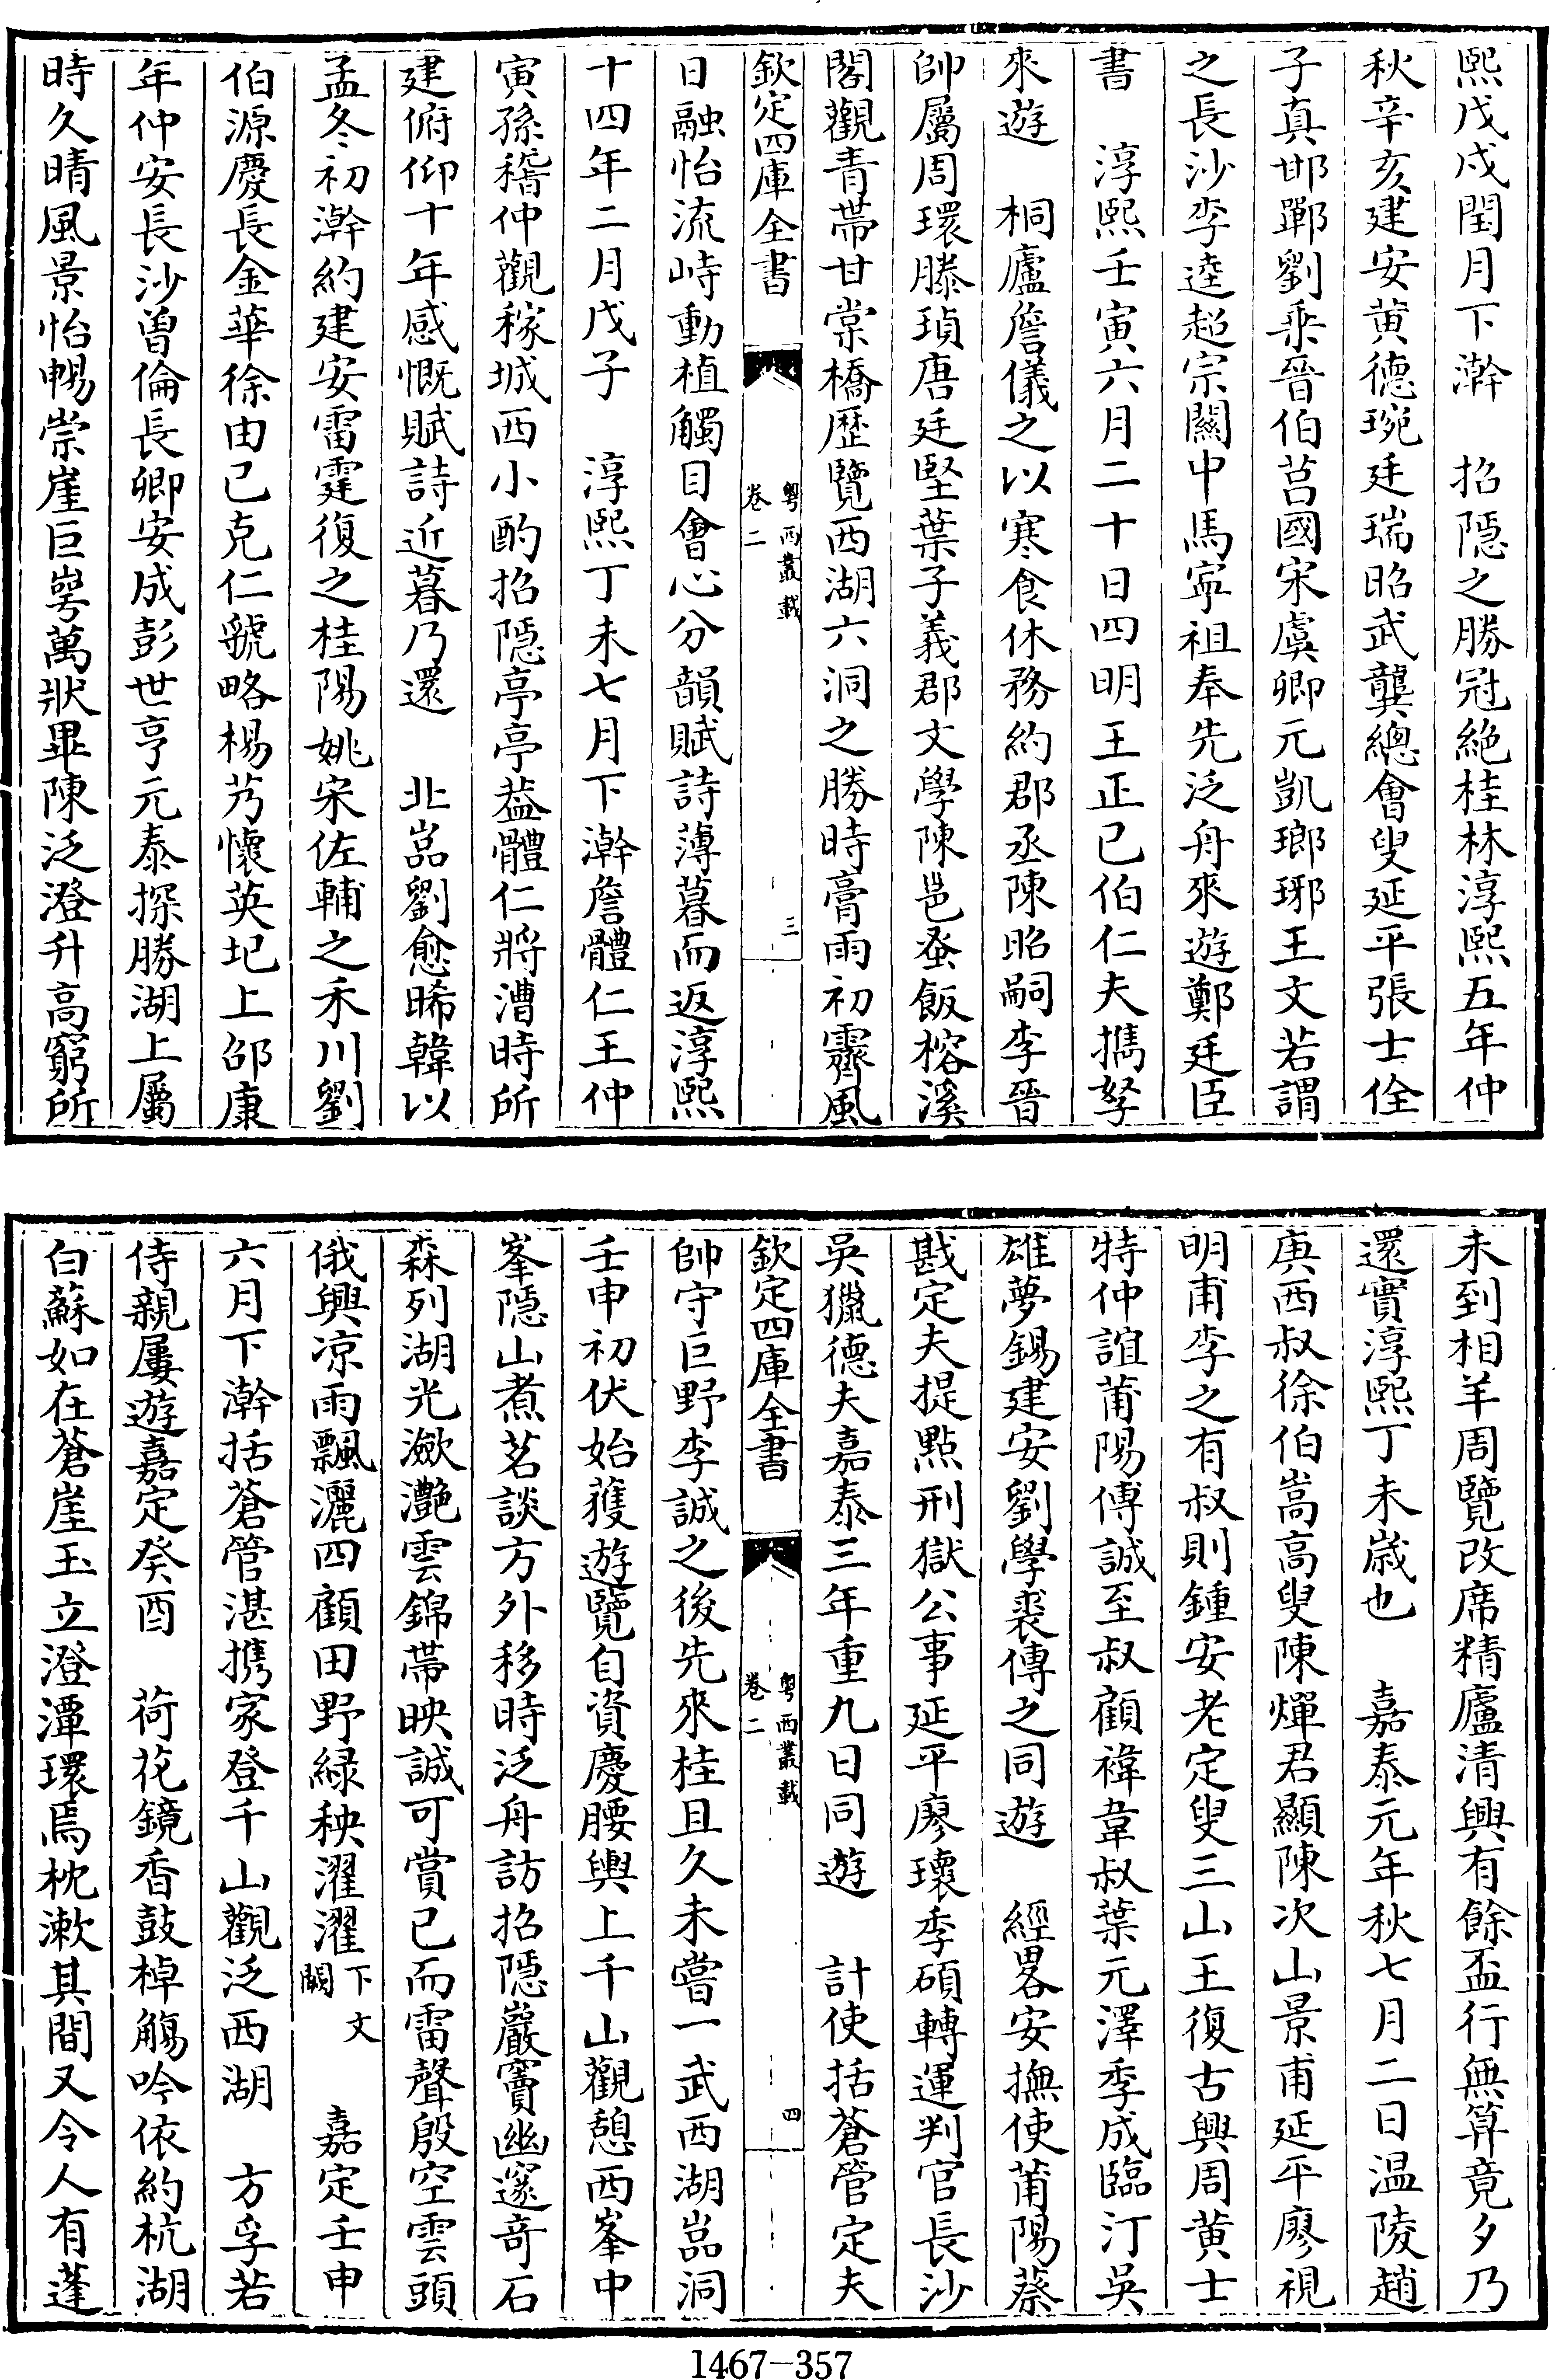 熙戊戌閏月下澣　招隱之勝冠絶桂林淳熙五年仲
秋辛亥建安黄德琬廷瑞昭武龔總會叟延平張士佺
子真邯鄲劉乘晉伯莒國宋虞卿元凱瑯琊王文若謂
之長沙李逵超宗關中馬寧祖奉先泛舟來遊鄭廷臣
書　淳熙壬寅六月二十日四明王正已伯仁夫攜孥
來遊　桐廬詹儀之以寒食休務約郡丞陳昭嗣李晉
帥屬周環滕瑱唐廷堅葉子義郡文學陳邕蚤飯榕溪
閣觀青帶甘棠橋歷覽西湖六洞之勝時膏雨初霽風
欽定四庫全書　粤西叢載　卷二　三
日融怡流峙動植觸目會心分韻賦詩薄暮而返淳熙
十四年二月戊子　淳熙丁未七月下澣詹體仁王仲
寅孫稽仲觀稼城西小酌招隱亭亭葢體仁將漕時所
建俯仰十年感慨賦詩近暮乃還　北嵓劉愈晞韓以
孟冬初澣約建安雷霆復之桂陽姚宋佐輔之禾川劉
伯源慶長金華徐由已克仁虢略楊艿懷英圯上邵康
年仲安長沙曽倫長卿安成彭世亨元泰探勝湖上屬
時久晴風景怡暢崇崖巨崿萬狀畢陳泛澄升高窮所
未到相羊周覽改席精廬清興有餘盃行無算竟夕乃
還實淳熙丁未歳也　嘉泰元年秋七月二日温陵趙
庚西叔徐伯嵩高叟陳燀君顯陳次山景甫延平廖視
明甫李之有叔則鍾安老定叟三山王復古興周黄士
特仲誼莆陽傅誠至叔顧禕韋叔葉元澤季成臨汀吳
雄夢錫建安劉學裘傳之同遊　經畧安撫使莆陽蔡
戡定夫提點刑獄公事延平廖瓌季碩轉運判官長沙
吳獵德夫嘉泰三年重九日同遊　計使括蒼管定夫
欽定四庫全書　粤西叢載　卷二　四
帥守巨野李誠之後先來桂且久未嘗一武西湖嵓洞
壬申初伏始獲遊覽自資慶腰輿上千山觀憩西峯中
峯隱山煮茗談方外移時泛舟訪招隱巖竇幽邃奇石
森列湖光瀲灔雲錦帶映誠可賞已而雷聲殷空雲頭
俄興凉雨飄灑四顧田野緑秧濯濯下文闕　嘉定壬申
六月下澣括蒼管湛携家登千山觀泛西湖　方孚若
侍親屢遊嘉定癸酉　荷花鏡香鼓棹觴吟依約杭湖
白蘇如在蒼崖玉立澄潭環焉枕漱其間又令人有蓬
1467-357